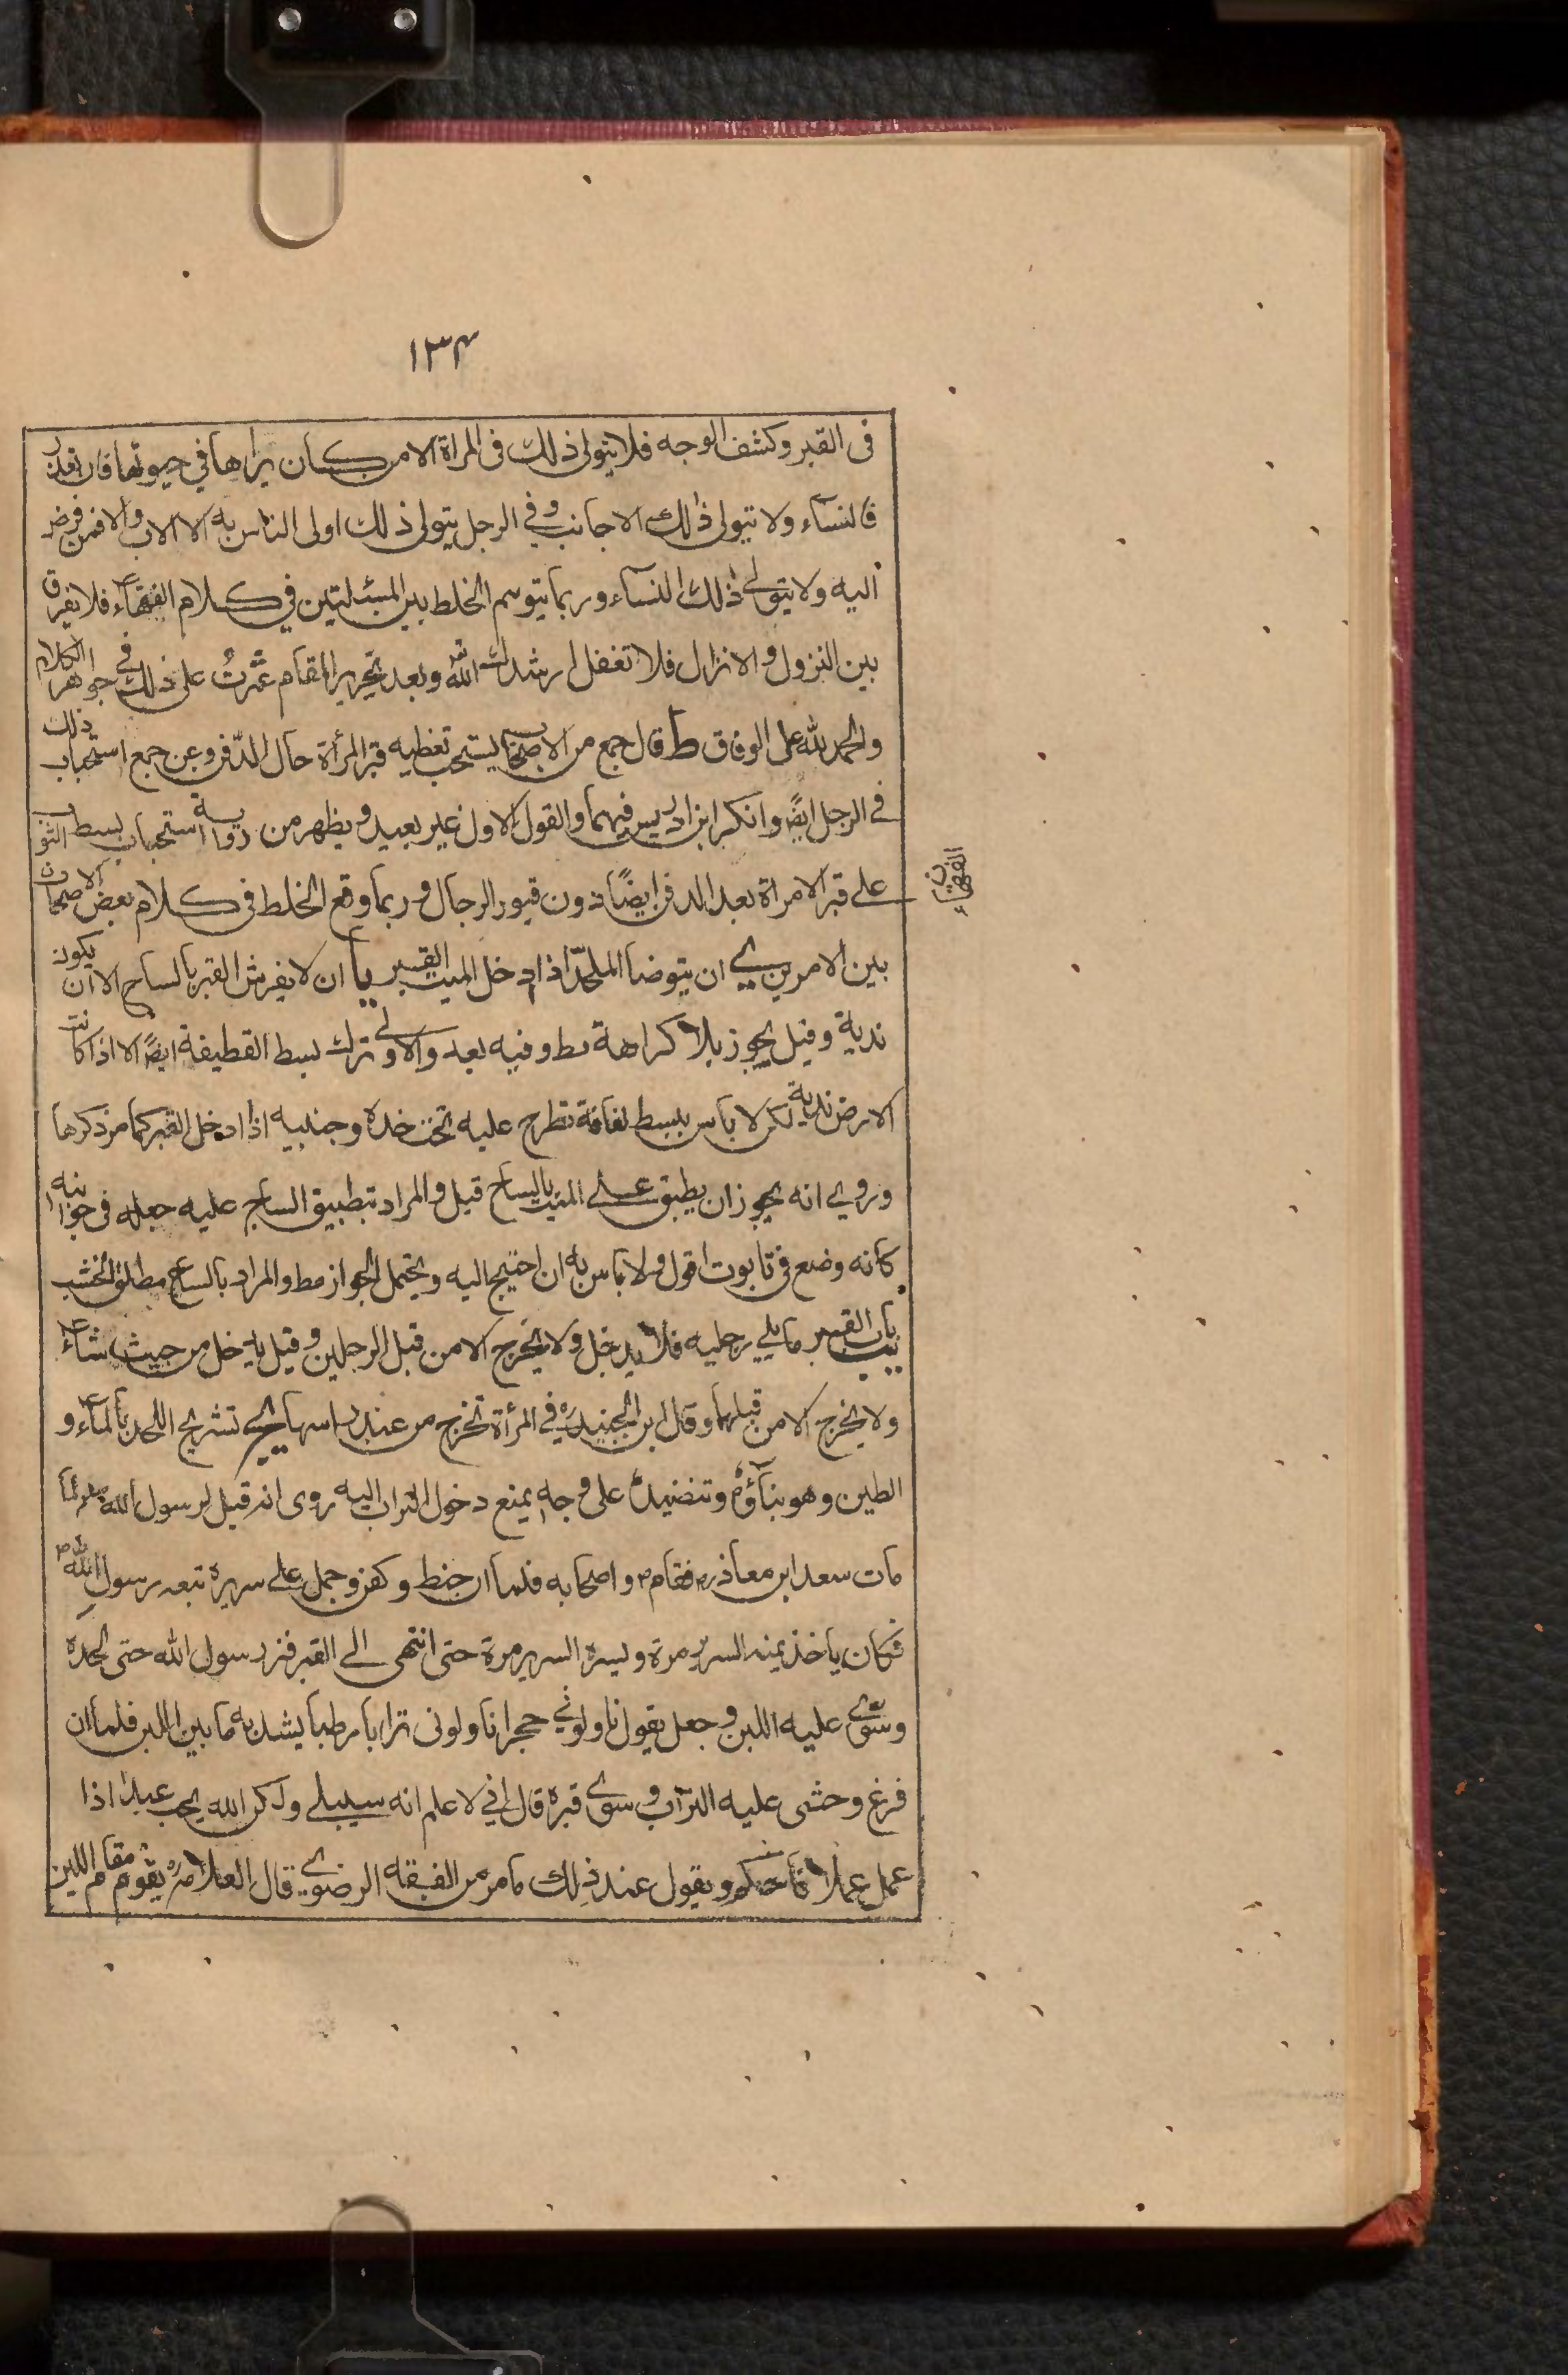 ١٣٤
فى القبر وكشف الوجه فلا يتولى ذلك فى المراة الا من كان يراها في حيوتها فان تعذر
فالنساء ولا تيولى ذلك الاجانب وفي الرجل يتولى ذلك اولى الناس به الا الاب والا فمن فرض
اليه ولا يتولى ذلك النساء وربما يتوهم الخلط بين المسئلتين في كلام الفقهاء فلا يفرق
بين النزول والانزال فلا تغفل ارشدك الله تعـ وبعد تحرير المقام عثرت على ذلك في جواهر الكلام
والحمد لله على الوفاق ط قال جمع من الاصحاب يستحب تغطيه قبر المرأة حال الدّفن وعن جمع استحباب ذلك
فى الرجل ايضًا وانكر ابن ادريس فيهما والقول الاول غير بعيد ويظهر من رواية استحباب بسط الثوب
على قبر الامراة بعد الدفن ايضًا دون قبور الرجال وربما وقع الخلط فى كلام بعض الاصحاب
بين الامرين ى ان يتوضأ الملحّد اذا دخل الميت القبر يا ان لا يفرش القبر بالساج الا ان يكون
ندية وقيل يجوز بلا كراهة مط وفيه بعد والاولى ترك بسط القطيفة ايضًا الا اذا كانت
الارض ندية لكن لا باس ببسط لفافة تطرح عليه تحت خده وجنبيه اذا ادخل القبر كما مر ذكرها
وروى انه يجوز ان يطبق على الميت بالساج قيل والمراد بتطبيق الساج عليه جعله فى جوانبه
كانه وضع فى تابوت اقول ولا باس به ان احتيج اليه ويحتمل الجواز مط والمراد بالساج مطلق الخشب
يب باب القبر ما يلي رجليه فلا يدخل ولا يخرج الا من قبل الرجلين وقيل يدخل من حيث شاء
ولا يخرج الا من قبلهما وقال ابن الجنيد ره في المرأة تخرج من عند راسها يج تشريج اللحد بالماء و
الطين وهو بناؤه وتنضيده على وجه يمنع دخول التراب اليه روى انه قيل لرسول الله صلعم لما
مات سعد ابن معاذ ره فقام ص واصحابه فلما ان حنط وكفن وحمل على سريره تبعه رسول الله ص
فكان ياخذ يمنه السرير مرة ويسره السرير مرة حتى انتهى الى القبر فنزل رسول الله حتى لحده
وسّوى عليه اللبن وجعل يقول ناولوني حجرا ناولونى ترابا رطبا يشد به ما بين اللبن فلما ان
فرغ وحثى عليه التراب وسوى قبره قال اني لاعلم انه سيبلى ولكن الله يحب عبدا اذا
عمل عملا فاحكم ويقول عند ذلك ما مر من الفقه الرضوى قال العلامة ره يقوم مقام اللبن